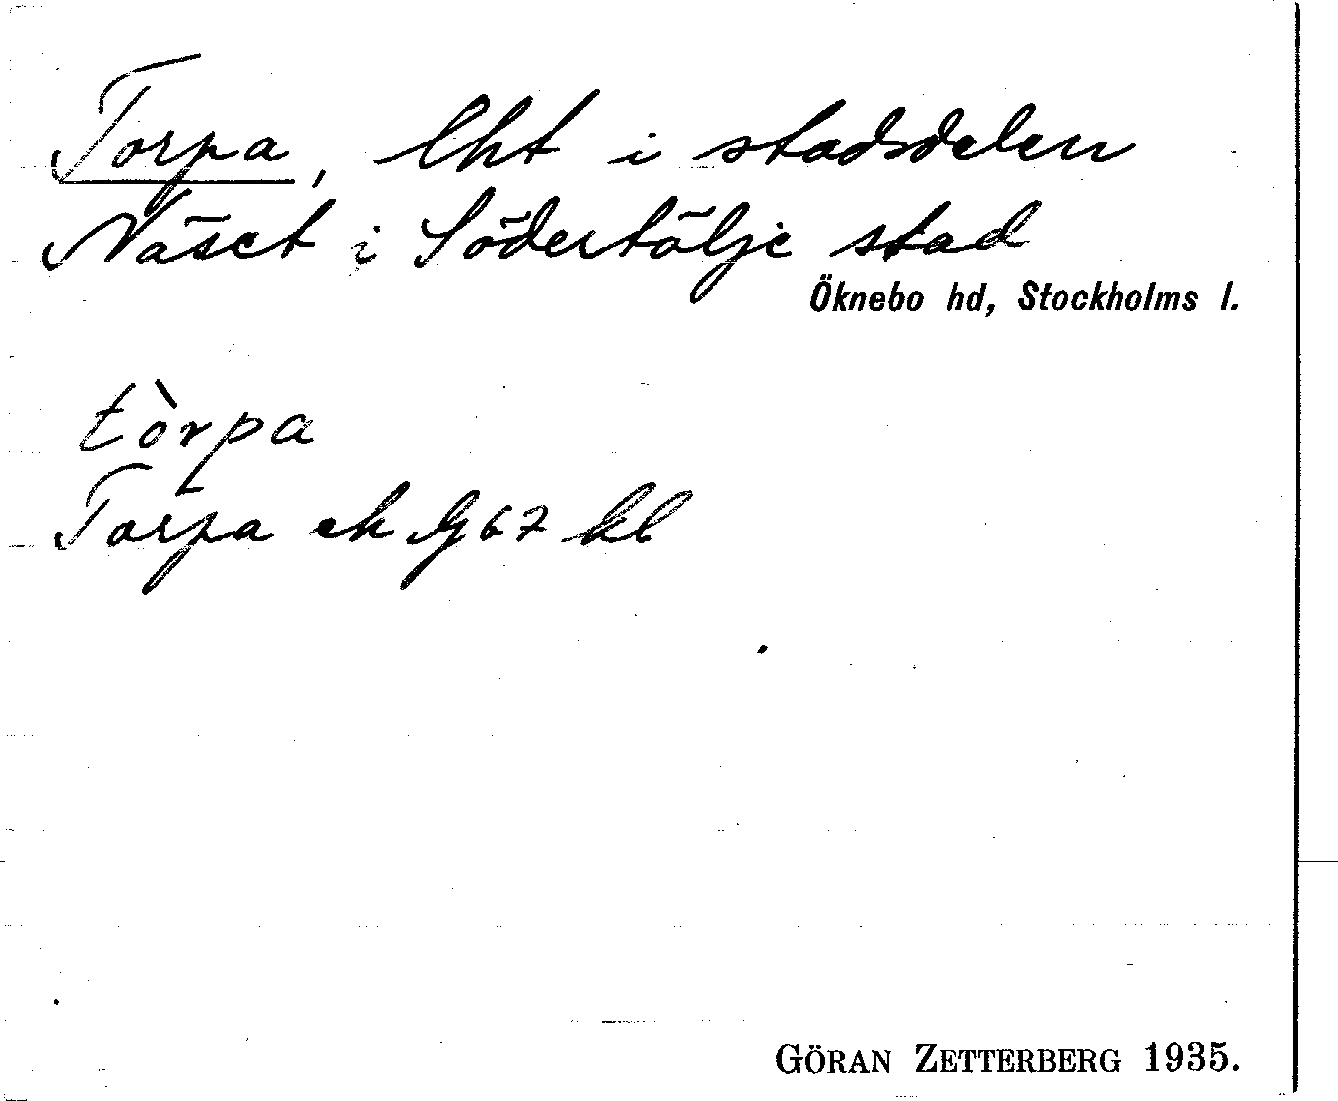 Torpa, lht i stadsdelen
Näset i Södertälje stad
Öknebo hd, Stockholms l.
tòrpa
Torpa ek G 67 bl
GÖRAN ZETTERBERG 1935.